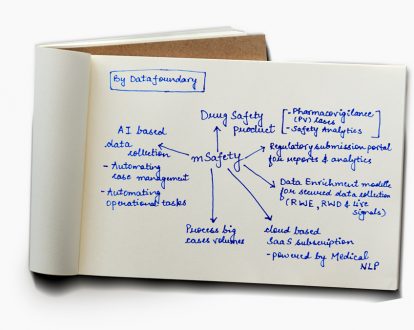 By Datafoundary
Drug Safety
product
- Pharmacovigilance
(PV) cases
- Safety Analytics
AI based
data
collection
- Automating
case management
- Automating
operational tasks
mSafety
Regulatory submission portal
for reports & analytics
Data Enrichment module
for secured data collection
(RWE, RWD & live
signals)
Process big
cases volumes
cloud based
SaaS subscription
- powered by Medical
NLP